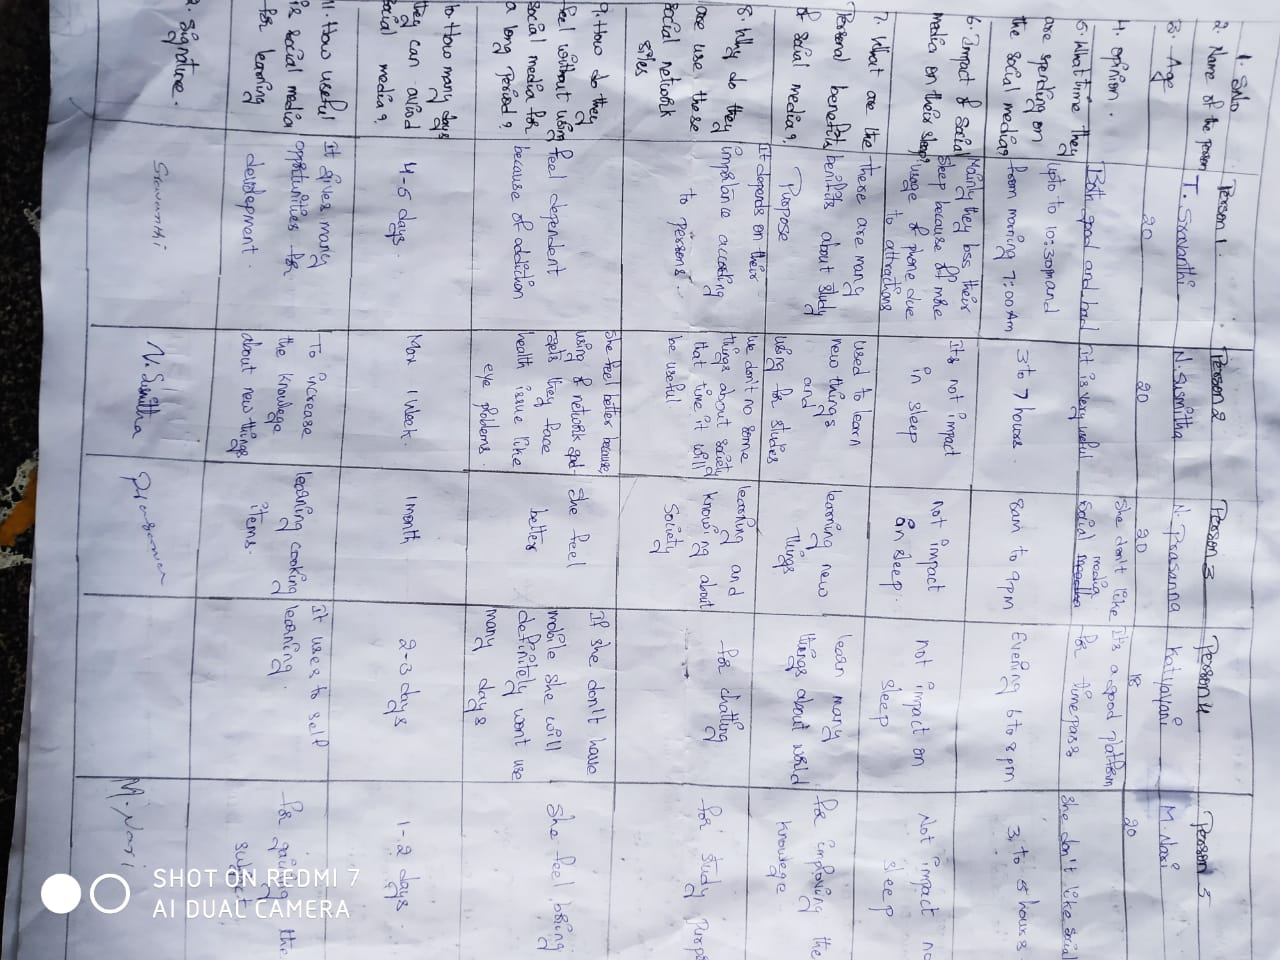 1. S.No
Person 1.
Person 2
Person 3
Person 4
Person 5
2. Name of the person
T. Sravanthi
N. Susmitha
N. Prasanna
Katyayani
M. Navi
3. Age
20
20
20
18
20
4. opinion.
Both good and bad
It is very useful
She don't like
social media
It's a good platform
for time pass
She don't like social
5. What time they
are spending on
the social media?
upto to 10:30pm and
from morning 7:00 Am
3 to 7 hours.
8am to 9pm
Evening 6 to 8 pm
3 to 5 hours.
6. Impact of social
media on their sleep?
Mainly they loss their
sleep because of more
usage of phone due
to attractions
It's not impact
in sleep
not impact
on sleep.
not impact on
sleep
Not impact
sleep
7. What are the
Personal benefits
of social media?
there are many
benifits about study
Purpose
used to learn
new things
and
using for studies
learning new
things
learn many
things about world
for improving the
knowlege
8. Why do they
are use these
social network
sites
It depends on their
importance according
to persons.
we don't no some
things about society
that time it will
be useful
learning and
knowing about
Society
for chatting
for study
9. How do they
feel without using
social media for
a long period?
feel dependent
because of addiction
She feel better because,
using of network
they face
health issue like
eye ploblems.
She feel
better
If she don't have
mobile she will
definitely wont use
many days
She feel boring
10. How many days
they can avoid
social media?
4-5 days.
Max 1 Week.
1 month
2-3 days
1-2 days.
11. How useful
is social media
for learning
It gives many
oppotunities for
development.
To increase
the knowlege
about new things
learning cooking
items.
It uses to self
learning.
for gaining the
subject
Signature.
Sravanthi
N. Susmitha
M. Navi
SHOT ON REDMI 7
AI DUAL CAMERA